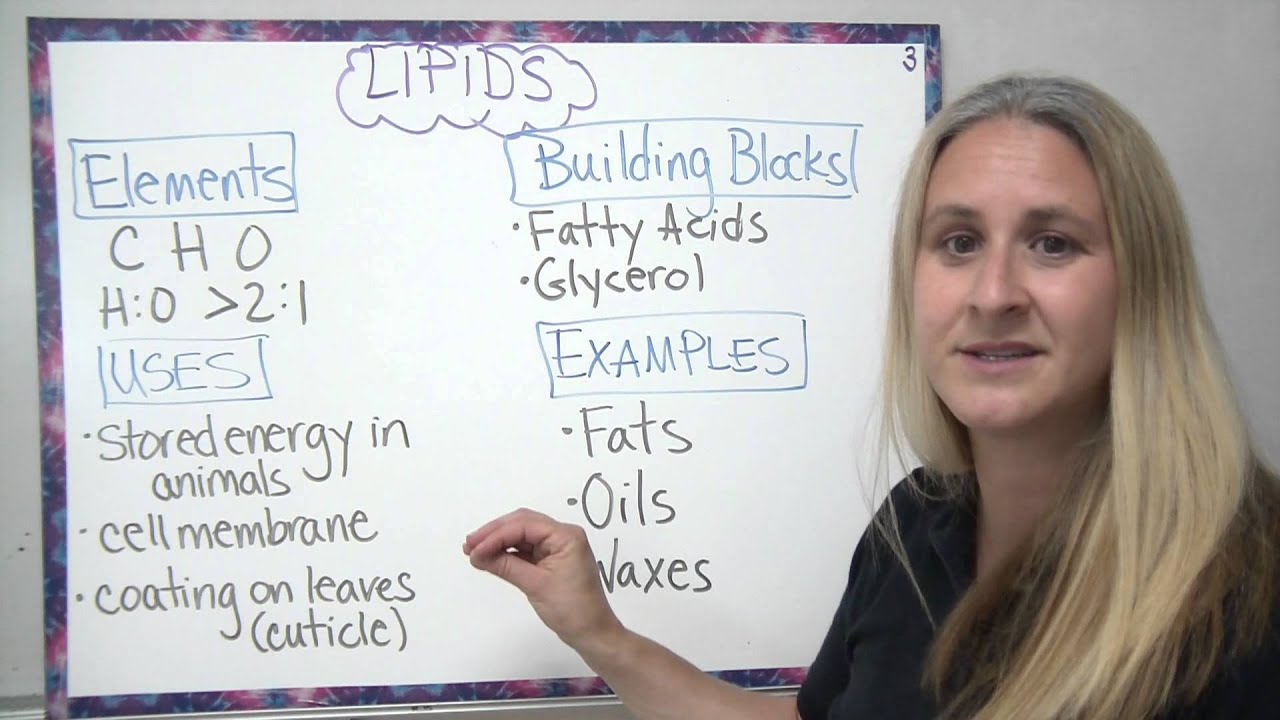 LIPIDS
3
Elements
C H O
H:O >2:1
USES
·Stored energy in
animals
·cell membrane
·coating on leaves
(cuticle)
Building Blocks
·Fatty Acids
·Glycerol
EXAMPLES
·Fats
·Oils
Waxes